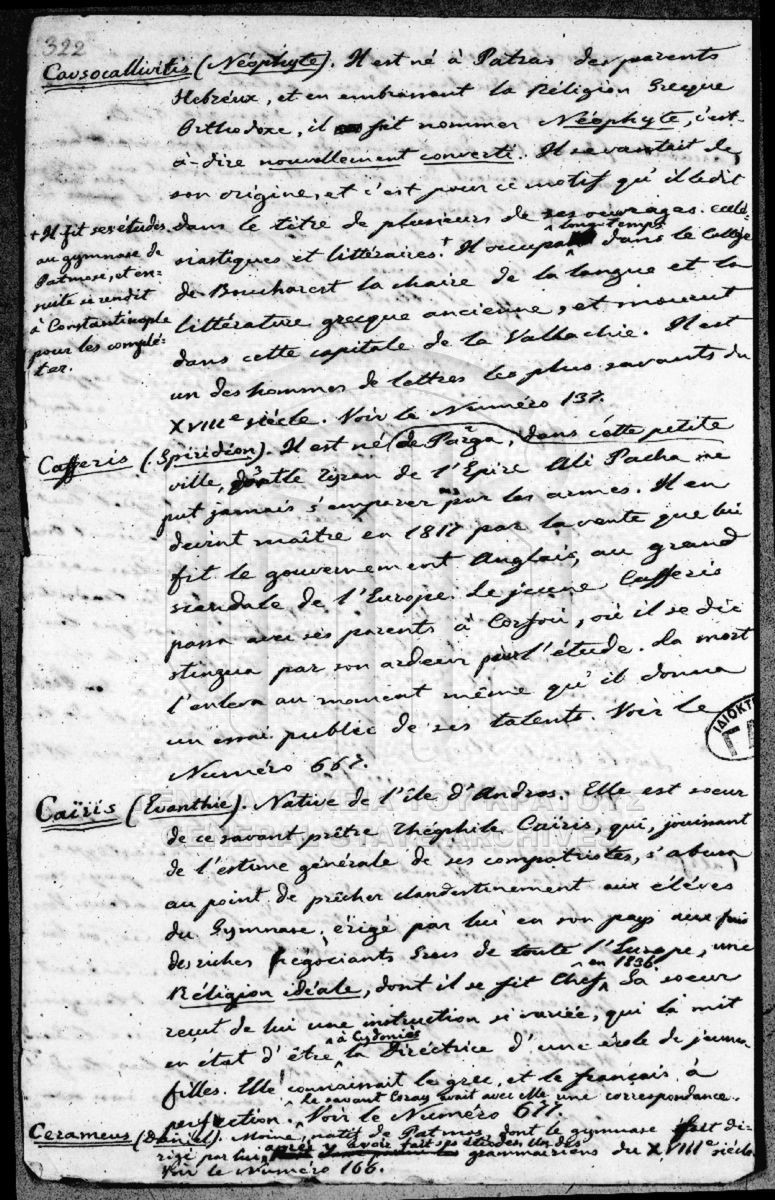 322
Causocallivitis (Néophyte). Il est né à Patras des parents
Hebréux, et en embrassant la Réligion Grecque
Orthodoxe, il fit nommer Néophyte, c'est-
à-dire nouvellement converti. Il se vantait de
son origine, et c'est pour ce motif qu'il le dit
dans le titre de plusieurs de ses ouvrages. ecclé-
siastiques et littéraires.+ Il occupa long-temps dans le College
de Boucharest la chaire de la langue et la
littérature grecque ancienne, et mourut
dans cette capitale de la Vallachie. Il est
un des hommes de lettres les plus savants du
XVIIIe siécle. Voir le Numéro 137.
+ Il fit ses études
au gymnase de
Patmos, et en-
suite se rendit
à Constantinople
pour les complé-
ter.
Cafferis (Spiridion). Il est né (de Parga, dans cette petite
ville, dont le Tyran de l'Epire Ali Pacha ne
put jamais s'emparer par les armes. Il en
devint maître en 1817 par la vente que lui
fit le gouvernement Anglais, au grand
scandale de l'Europe. Le jeune Cafferis
passa avec ses parents à Corfou, où il se di-
stingua par son ardeur pour l'étude. La mort
l'enleva au moment même qu'il donna
un essai public de ses talents. Voir le
Numéro 667.
Caïris (Evanthie). Native de l'île d'Andros. Elle est soeur
de ce savant prêtre Théophile Caïris, qui, jouissant
de l'estime générale de ses compatriotes, s'abusa
au point de prêcher clandestinement aux éléves
du Gymnase, érigé par lui en son pays aux frais
des riches négociants Grecs de toute l'Europe, une
Réligion idéale, dont il se fit Chef en 1836. La soeur
reçut de lui une instruction si variée, qui la mit
en état d'être à Cydonies la Diréctrice d'une école de jeunes
filles. Elle connaissait le grec, et le français à
perfection. le savant Coray avait avec elle une correspondance. Voir le Numéro 677.
Cerameus (Daniel). Moine, natif de Patmos, dont le gymnase fut di-
rigé par lui, après y avoir fait ses études. Un des grammairiens du XVIIIe siécle.
Voir le Numéro 166.
ΙΔΙΟΚΤ
ΓΕΝΙΚΑ ΑΡΧΕΙΑ ΤΟΥ ΚΡΑΤΟΥΣ
GENERAL STATE ARCHIVES